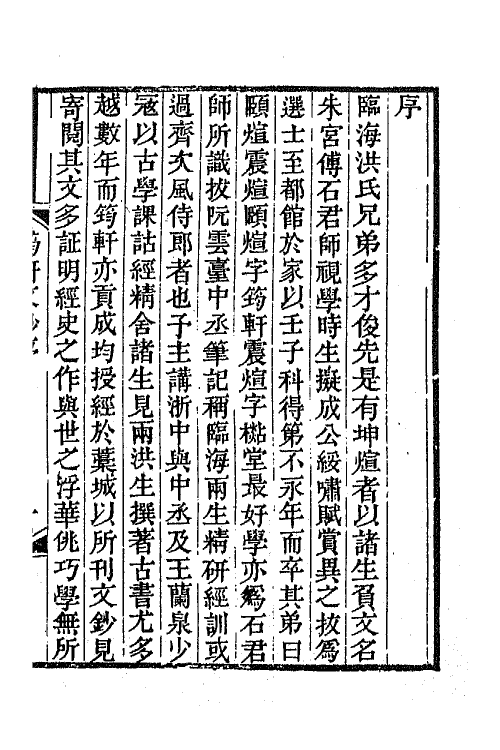 序
臨海洪氏兄弟多才俊先是有坤煊者以諸生負文名
朱宮傅石君師視學時生擬成公綏嘯賦賞異之拔爲
選士至都館於家以壬子科得第不永年而卒其弟曰
頤煊震煊頤煊字筠軒震煊字檆堂最好學亦爲石君
師所識拔阮雲臺中丞筆記稱臨海兩生精研經訓或
過齊次風侍郎者也予主講浙中與中丞及王蘭泉少
冦以古學課詁經精舍諸生見兩洪生撰著古書尤多
越數年而筠軒亦貢成均授經於藁城以所刊文鈔見
寄閱其文多証明經史之作與世之浮華佻巧學無所
筠軒文鈔序
一